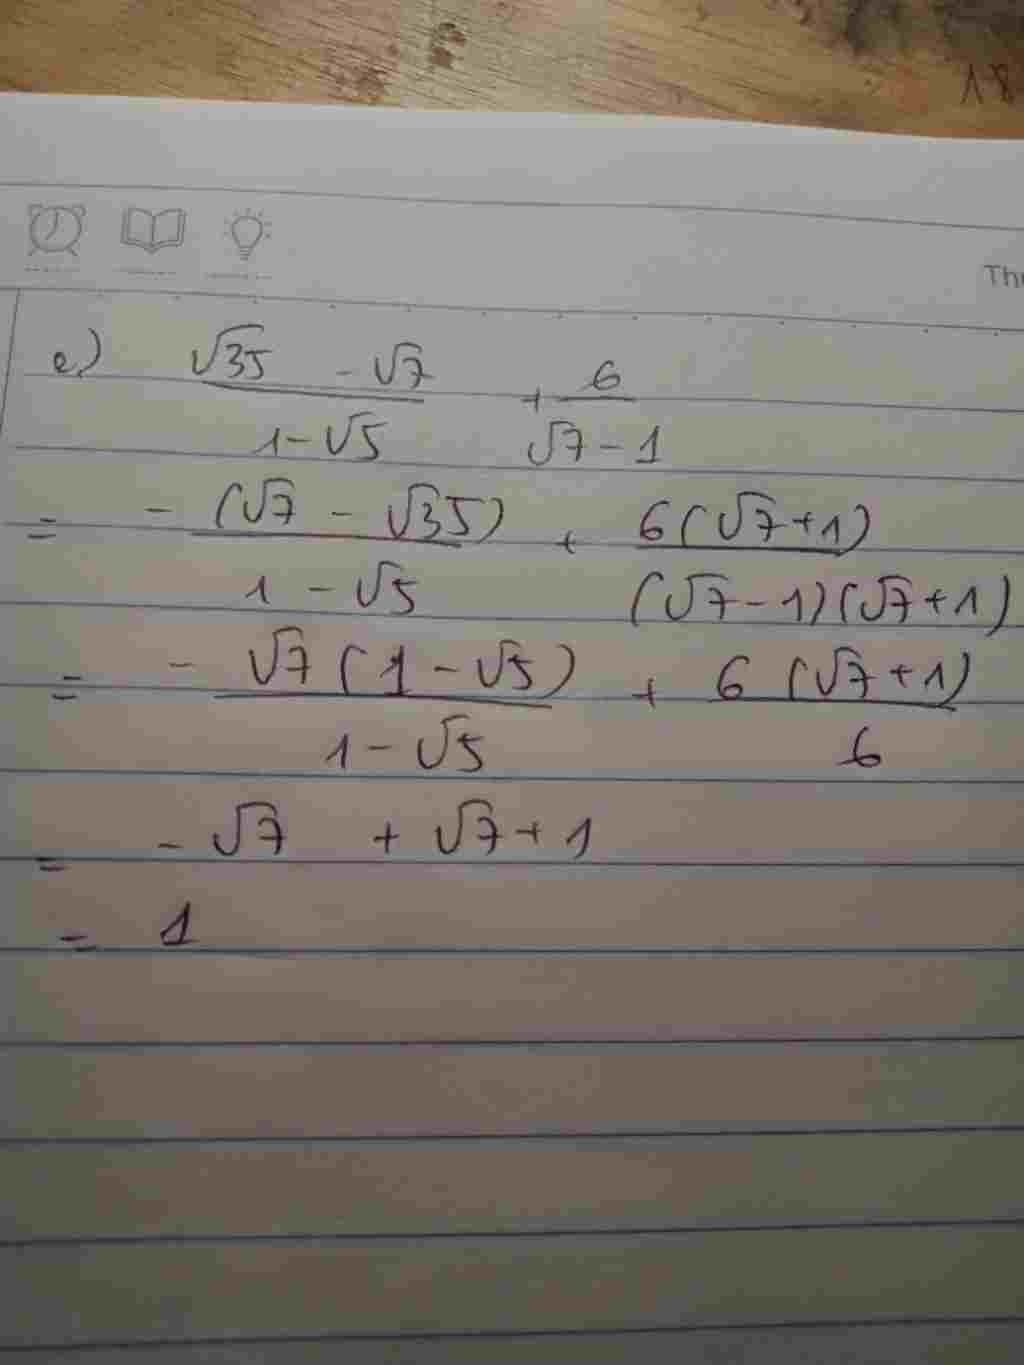 18
Thr
e) (√35 - √7)/(1 - √5) + 6/(√7 - 1)
= - (√7 - √35)/(1 - √5) + 6(√7 + 1)/((√7 - 1)(√7 + 1))
= - √7(1 - √5)/(1 - √5) + 6(√7 + 1)/6
= - √7 + √7 + 1
= 1